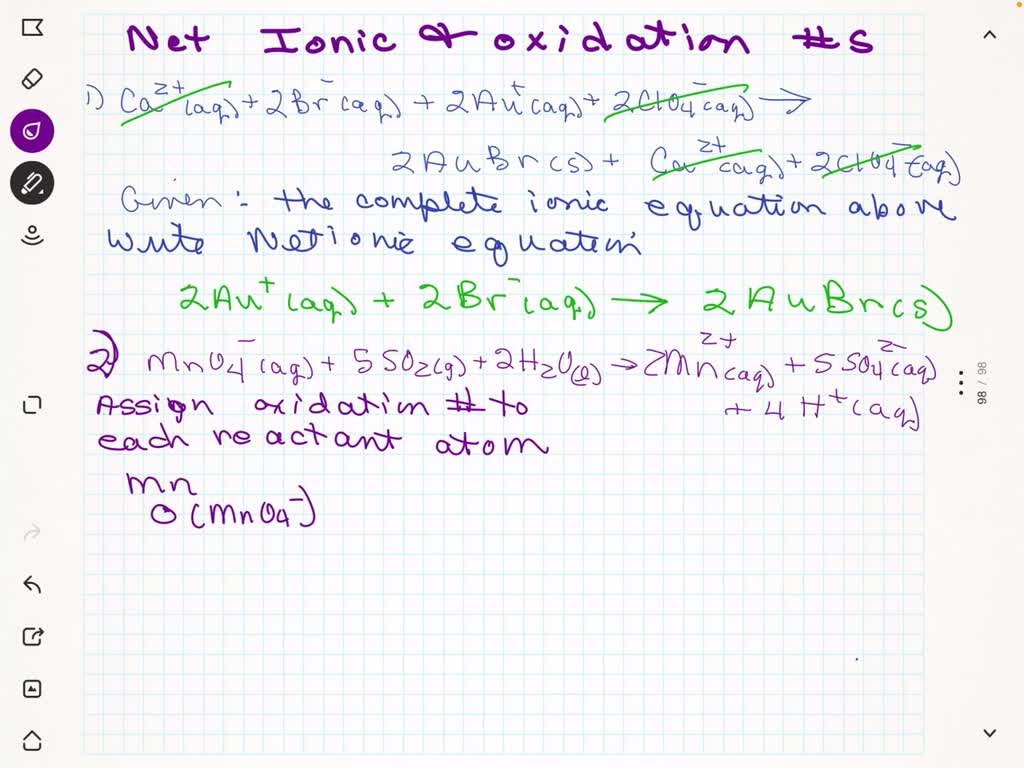 Net Ionic & oxidation #s
1) Ca²⁺(aq) + 2Br⁻(aq) + 2Au⁺(aq) + 2ClO₄⁻(aq) →
2AuBr(s) + Ca²⁺(aq) + 2ClO₄⁻(aq)
Given: the complete ionic equation above
write Net ionic equation
2Au⁺(aq) + 2Br⁻(aq) → 2AuBr(s)
2) MnO₄⁻(aq) + 5SO₂(g) + 2H₂O(l) → 2Mn²⁺(aq) + 5SO₄²⁻(aq)
+ 4H⁺(aq)
Assign oxidation # to
each reactant atom
Mn
O (MnO₄⁻)
98 / 98